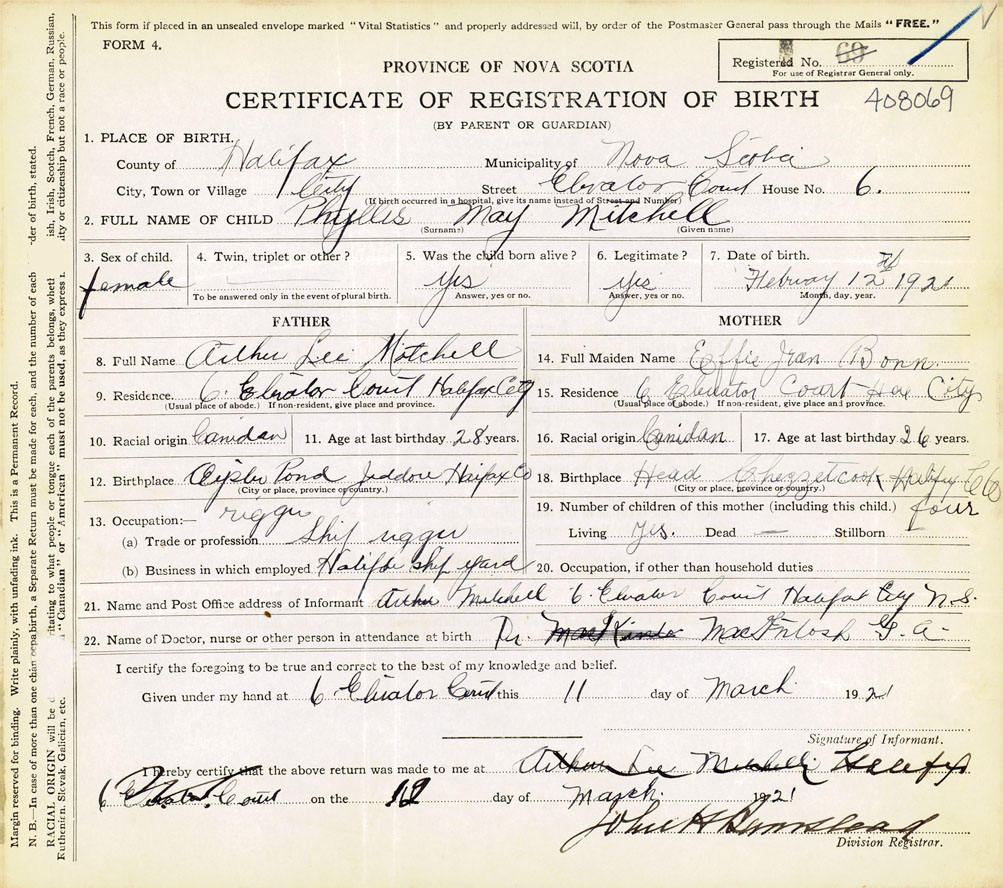 This form if placed in an unsealed envelope marked "Vital Statistics" and properly addressed will, by order of the Postmaster General pass through the Mails "FREE."
FORM 4.
Registered No. 69
For use of Registrar General only.
PROVINCE OF NOVA SCOTIA
CERTIFICATE OF REGISTRATION OF BIRTH
408069
(BY PARENT OR GUARDIAN)
1. PLACE OF BIRTH.
County of Halifax Municipality of Nova Scotia
City, Town or Village City Street Elvator Court House No. 6.
(If birth occurred in a hospital, give its name instead of Street and Number)
2. FULL NAME OF CHILD Phyllis May Mitchell
(Surname) (Given name)
3. Sex of child. 4. Twin, triplet or other? 5. Was the child born alive? 6. Legitimate? 7. Date of birth.
female yes yes Februay 12th 1921
To be answered only in the event of plural birth. Answer, yes or no. Answer, yes or no. Month, day, year.
FATHER MOTHER
8. Full Name Arthur Lee Mitchell 14. Full Maiden Name Effie Jean Bonn
9. Residence. 6 Elvator Court Halifax City 15. Residence 6 Elvator Court Hax City
(Usual place of abode.) If non-resident, give place and province. (Usual place of abode.) If non-resident, give place and province.
10. Racial origin Canidan 11. Age at last birthday 28 years. 16. Racial origin Canidan 17. Age at last birthday 26 years.
12. Birthplace Oyster Pond Jeddore Haifax Co 18. Birthplace Head Chezzetcook Halifax Co
(City or place, province or country.) (City or place, province or country.)
13. Occupation:— rigger 19. Number of children of this mother (including this child.) four
(a) Trade or profession Ship rigger Living Yes. Dead — Stillborn
(b) Business in which employed Halifax ship yard 20. Occupation, if other than household duties
21. Name and Post Office address of Informant Arthur Mitchell 6. Elvator Court Halifax City N.S.
22. Name of Doctor, nurse or other person in attendance at birth Dr. MacKinto MacIntosh G. A.
I certify the foregoing to be true and correct to the best of my knowledge and belief.
Given under my hand at 6 Elvator Court this 11 day of March 1921
Signature of Informant.
I hereby certify that the above return was made to me at Arthur Lee Mitchell Halifax
6 Court on the 12 day of March 1921
John H
Division Registrar.
Margin reserved for binding. Write plainly, with unfading ink. This is a Permanent Record.
N. B.—In case of more than one birth, a Separate Return must be made for each, and the number of each
der of birth, stated.
RACIAL ORIGIN will be itating to what people or tongue each of the parents belongs, whet
ish, Irish, Scotch, French, German, Russian,
Ruthenian, Slovak, Galician, etc. "Canadian" or "American" must not be used, as they express
ity or citizenship but not a race or people.